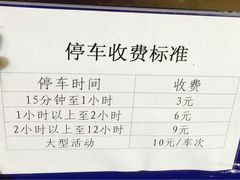 停车收费标准
停车时间 收费
15分钟至1小时 3元
1小时以上至2小时 6元
2小时以上至12小时 9元
大型活动 10元/车次